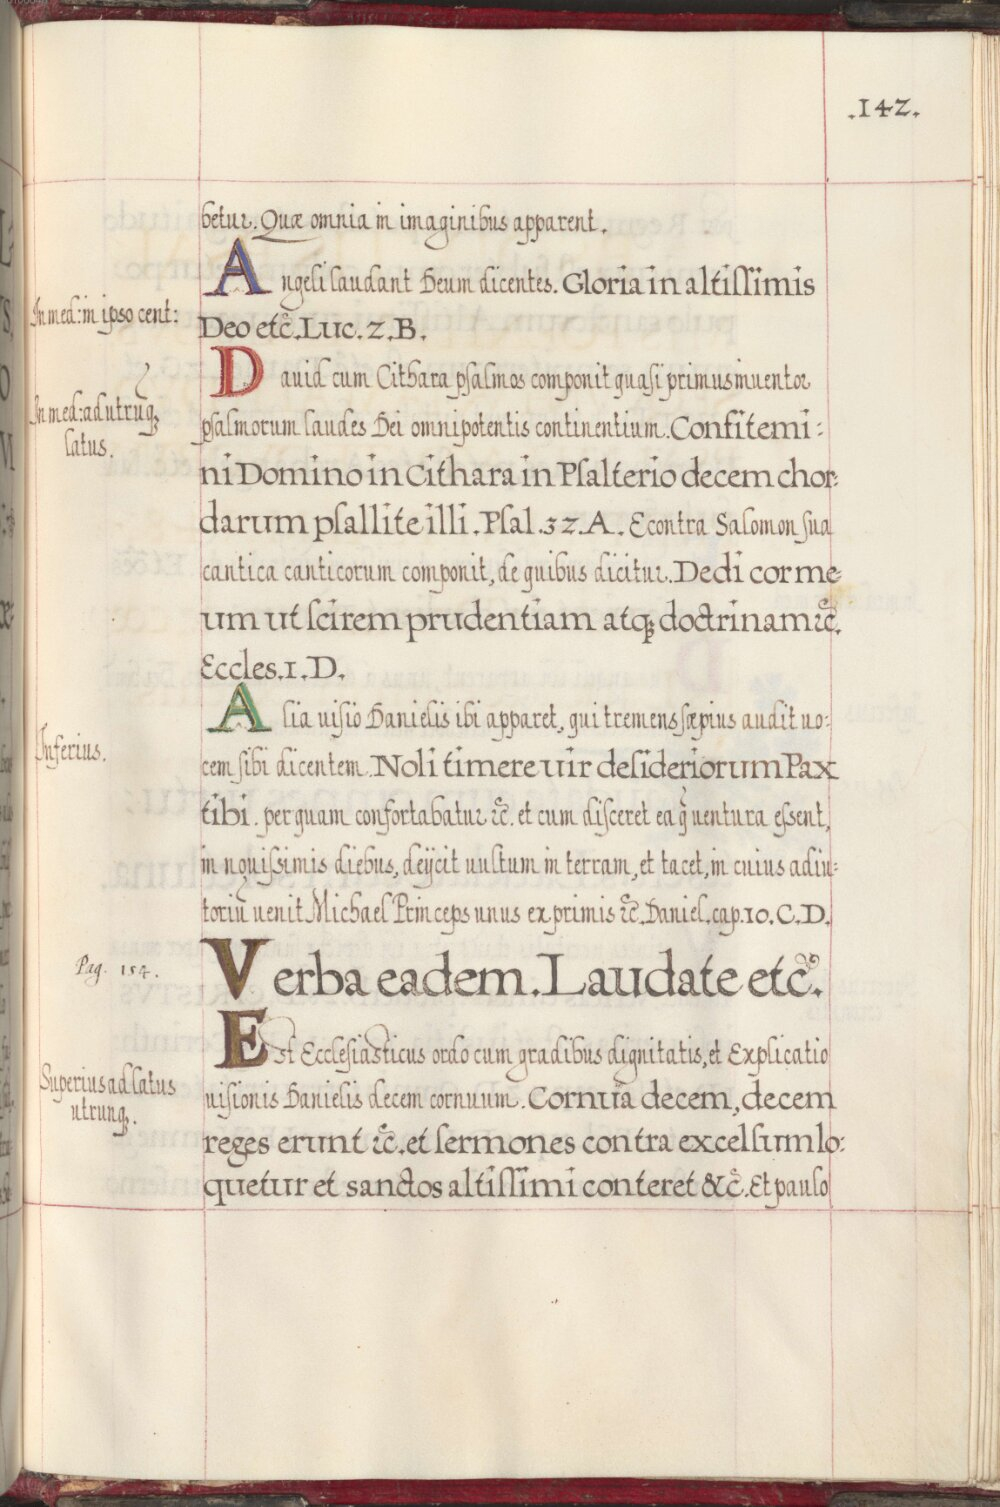 .142.
betur. Quæ omnia in imaginibus apparent.
Angeli laudant Deum dicentes. Gloria in altissimis
In med: in ipso cent:
Deo etc̃. Luc. 2. B.
Dauid cum Cithara psalmos componit quasi primus inuentor
In med: ad utrũq;
latus.
psalmorum laudes Dei omnipotentis continentium. Confitemi:
ni Domino in Cithara in Psalterio decem chor:
darum psallite illi. Psal. 32. A. Econtra Salomon sua
cantica canticorum componit, de quibus dicitur. Dedi cor me:
um ut scirem prudentiam atq; doctrinam ⁊c̃.
Eccles. 1. D.
Alia uisio Danielis ibi apparet, qui tremens sæpius audit uo:
Inferius.
cem sibi dicentem. Noli timere uir desideriorum Pax
tibi. per quam confortabatur ⁊c̃. et cum disceret ea q̃ uentura essent,
in nouissimis diebus, deijcit uultum in terram, et tacet, in cuius adiu:
toriũ uenit Michael Princeps unus ex primis ⁊c̃. Daniel. cap. 10. C. D.
Pag. 154.
Verba eadem. Laudate etc̃.
Est Ecclesiasticus ordo cum gradibus dignitatis, et Explicatio
Superius ad latus
utrunq;.
uisionis Danielis decem cornuum. Cornua decem, decem
reges erunt ⁊c̃. et sermones contra excelsum lo:
quetur et sanctos altissimi conteret &c̃. Et paulo